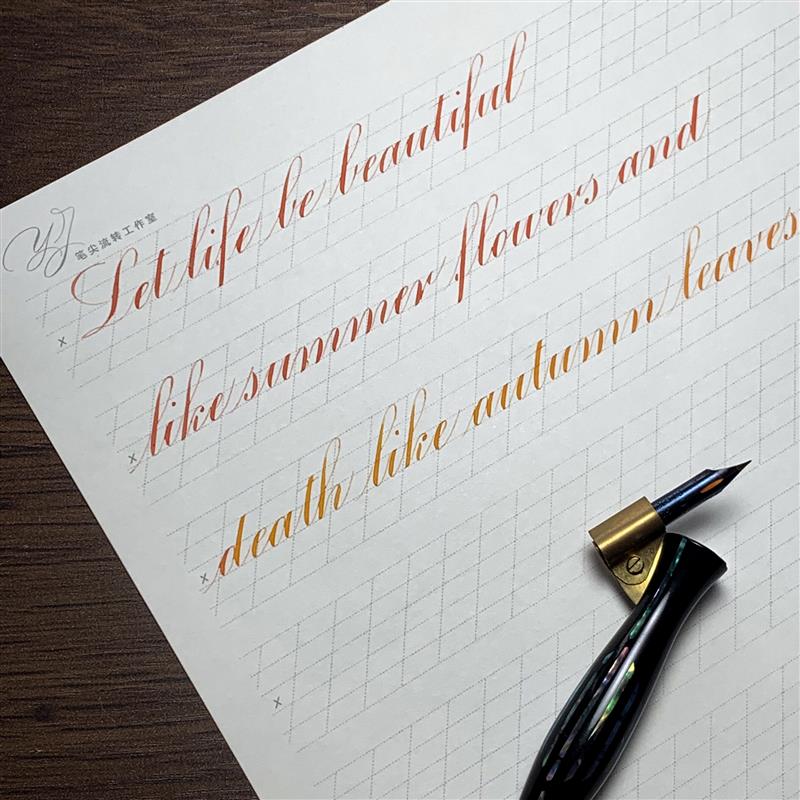 YJ 笔尖流转工作室
Let life be beautiful
like summer flowers and
death like autumn leaves